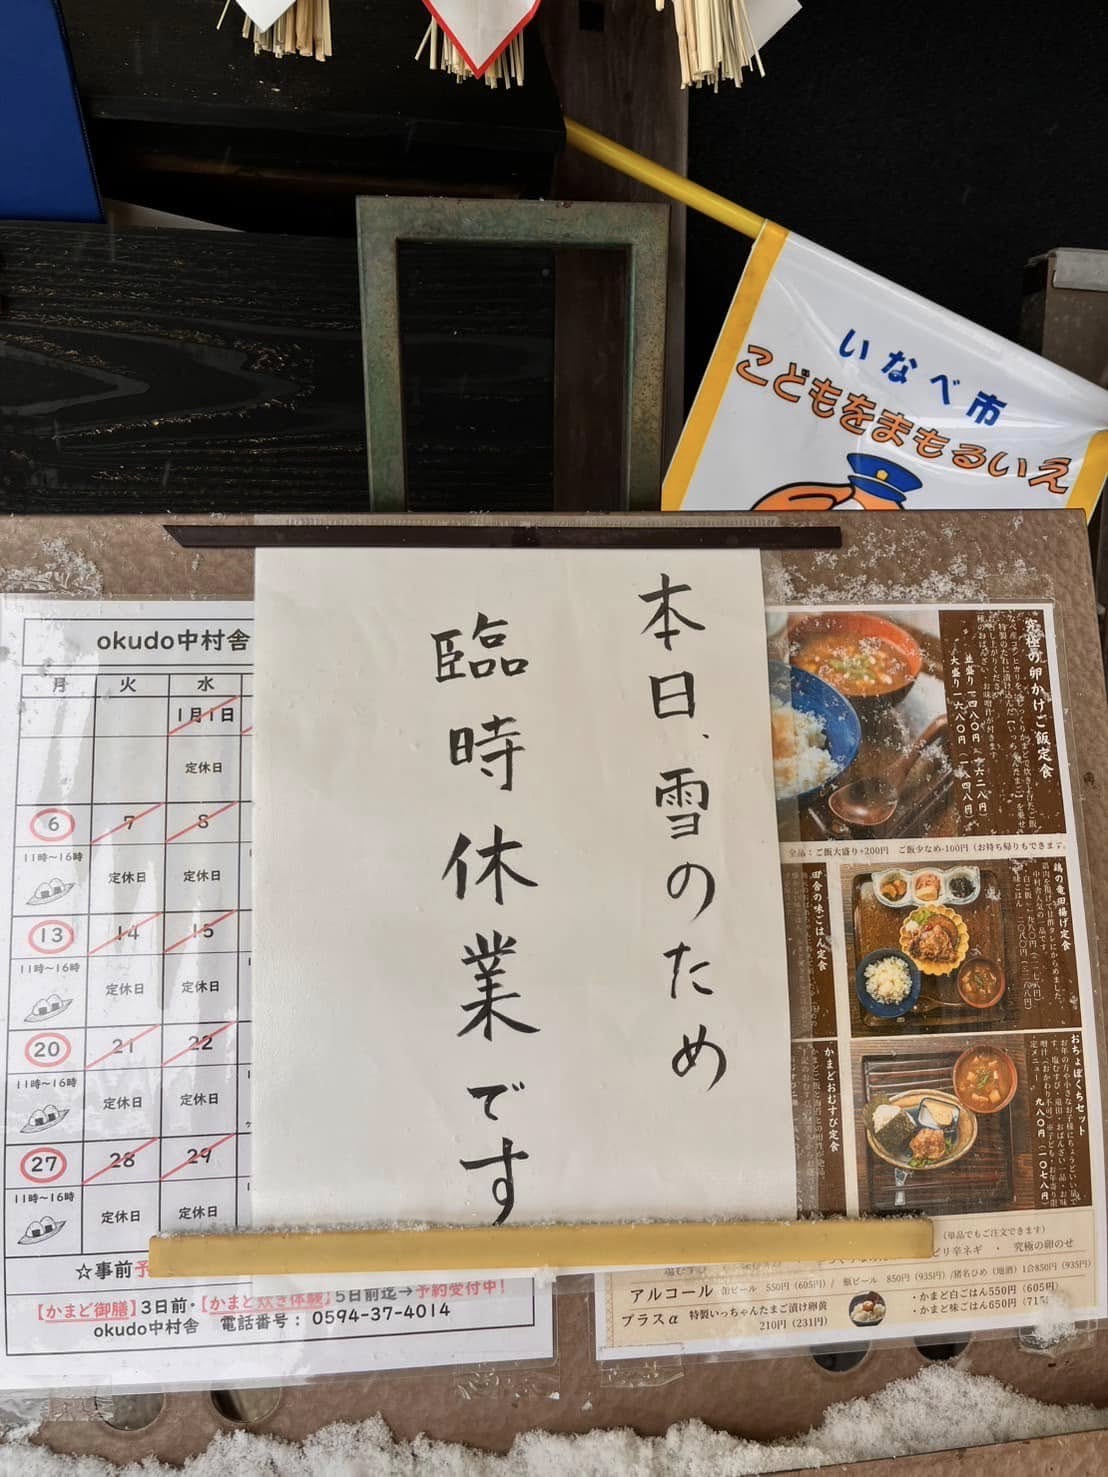 いなべ市
こどもをまもるいえ
本日、雪のため
臨時休業です
okudo中村舎
月 火 水
1月1日
定休日
6 7 8
11時〜16時 定休日 定休日
13 14 15
11時〜16時 定休日 定休日
20 21 22
11時〜16時 定休日 定休日
27 28 29
11時〜16時 定休日 定休日
☆事前予
【かまど御膳】3日前・【かまど炊き体験】5日前迄→予約受付中!
okudo中村舎 電話番号: 0594-37-4014
究極の卵かけご飯定食
並盛り一四八〇円(一六二八円)
大盛り一六八〇円(一八四八円)
全品:ご飯大盛り+200円 ご飯少なめ-100円(お持ち帰りもできます
鶏の竜田揚げ定食
田舎の味ごはん定食
おちょぼくちセット
九八〇円(一〇七八円)
かまどおむすび定食
(単品でもご注文できます)
ピリ辛ネギ ・ 究極の卵のせ
アルコール 缶ビール 550円(605円)/ 瓶ビール 850円(935円)/猪名ひめ(地酒)1合850円(935円)
プラスα 特製いっちゃんたまご漬け卵黄
210円(231円)
・かまど白ごはん550円(605円)
・かまど味ごはん650円(715